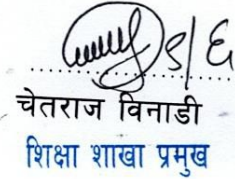 ५/६
चेतराज विनाडी
शिक्षा शाखा प्रमुख